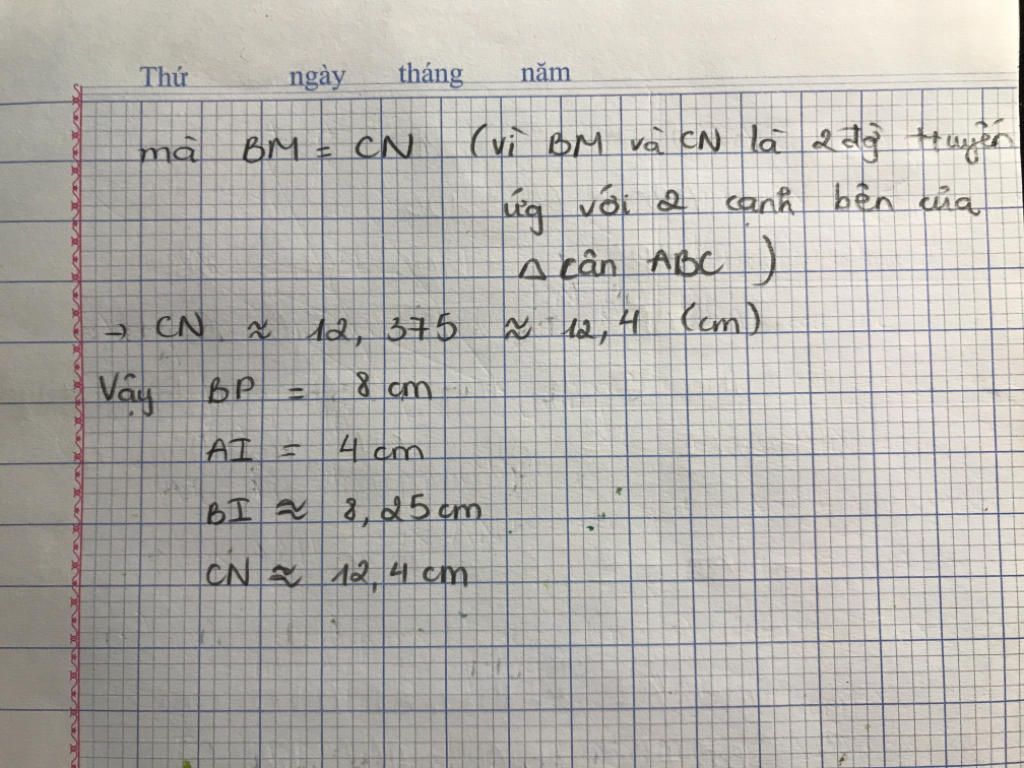 Thứ ngày tháng năm
mà BM = CN (vì BM và CN là 2 đg tuyến
ứg với 2 cạnh bên của
Δ cân ABC )
→ CN ≈ 12,375 ≈ 12,4 (cm)
Vậy BP = 8 cm
AI = 4 cm
BI ≈ 8,25 cm
CN ≈ 12,4 cm